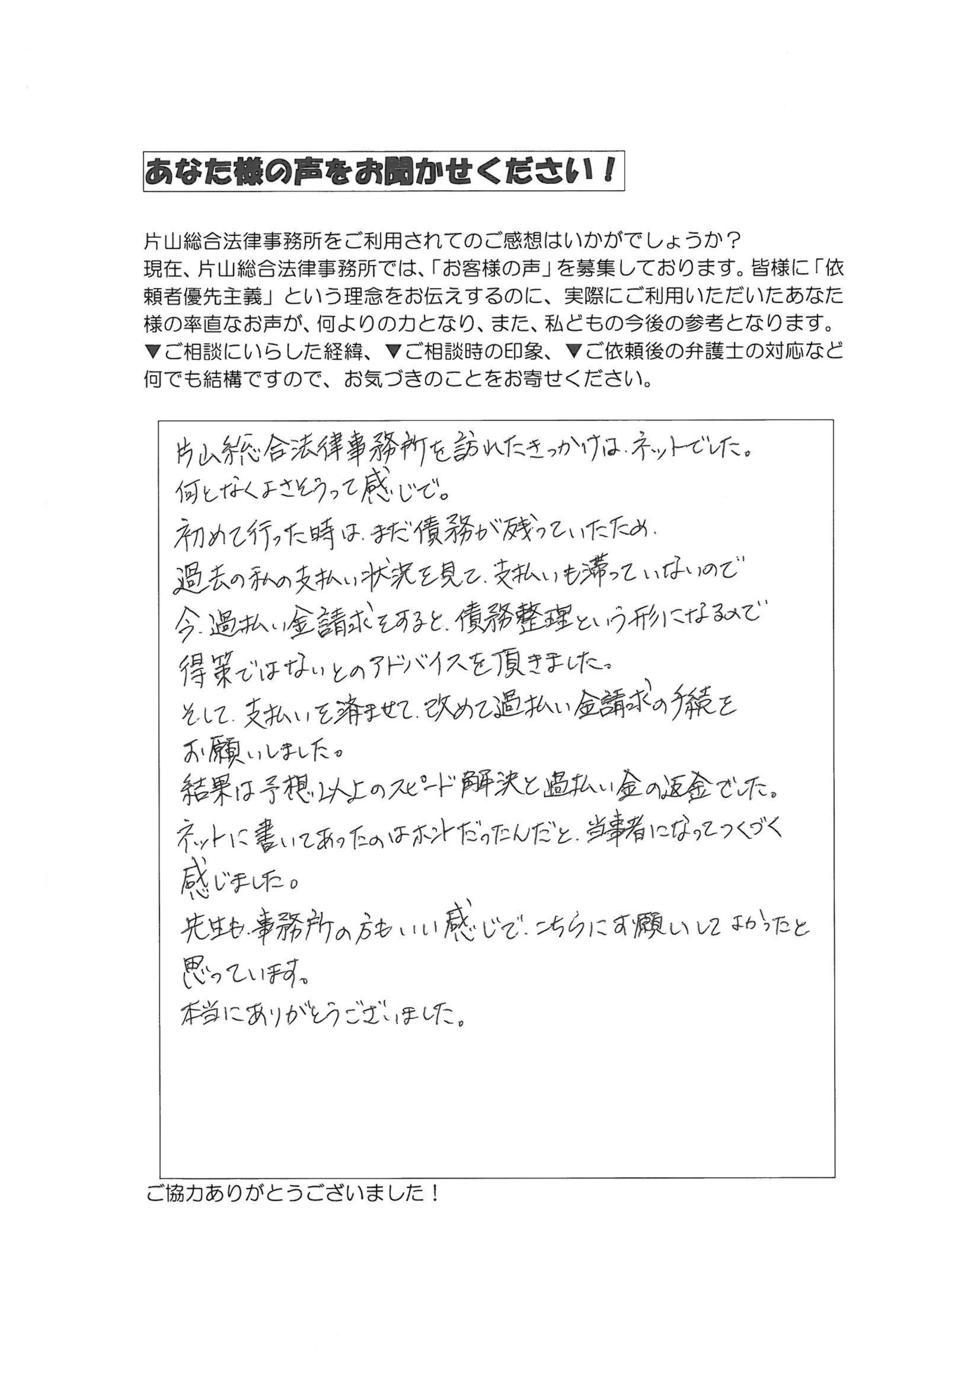 あなた様の声をお聞かせください！
片山総合法律事務所をご利用されてのご感想はいかがでしょうか？
現在、片山総合法律事務所では、「お客様の声」を募集しております。皆様に「依
頼者優先主義」という理念をお伝えするのに、実際にご利用いただいたあなた
様の率直なお声が、何よりの力となり、また、私どもの今後の参考となります。
▼ご相談にいらした経緯、▼ご相談時の印象、▼ご依頼後の弁護士の対応など
何でも結構ですので、お気づきのことをお寄せください。
片山総合法律事務所を訪れたきっかけは、ネットでした。
何となくよさそうって感じで。
初めて行った時は、まだ債務が残っていたため、
過去の私の支払い状況を見て、支払いも滞っていないので
今、過払い金請求をすると、債務整理という形になるので
得策ではないとのアドバイスを頂きました。
そして、支払いを済ませて、改めて過払い金請求の手続を
お願いしました。
結果は予想以上のスピード解決と過払い金の返金でした。
ネットに書いてあったのはホントだったんだと、当事者になってつくづく
感じました。
先生も、事務所の方もいい感じで、こちらにお願いしてよかったと
思っています。
本当にありがとうございました。
ご協力ありがとうございました！